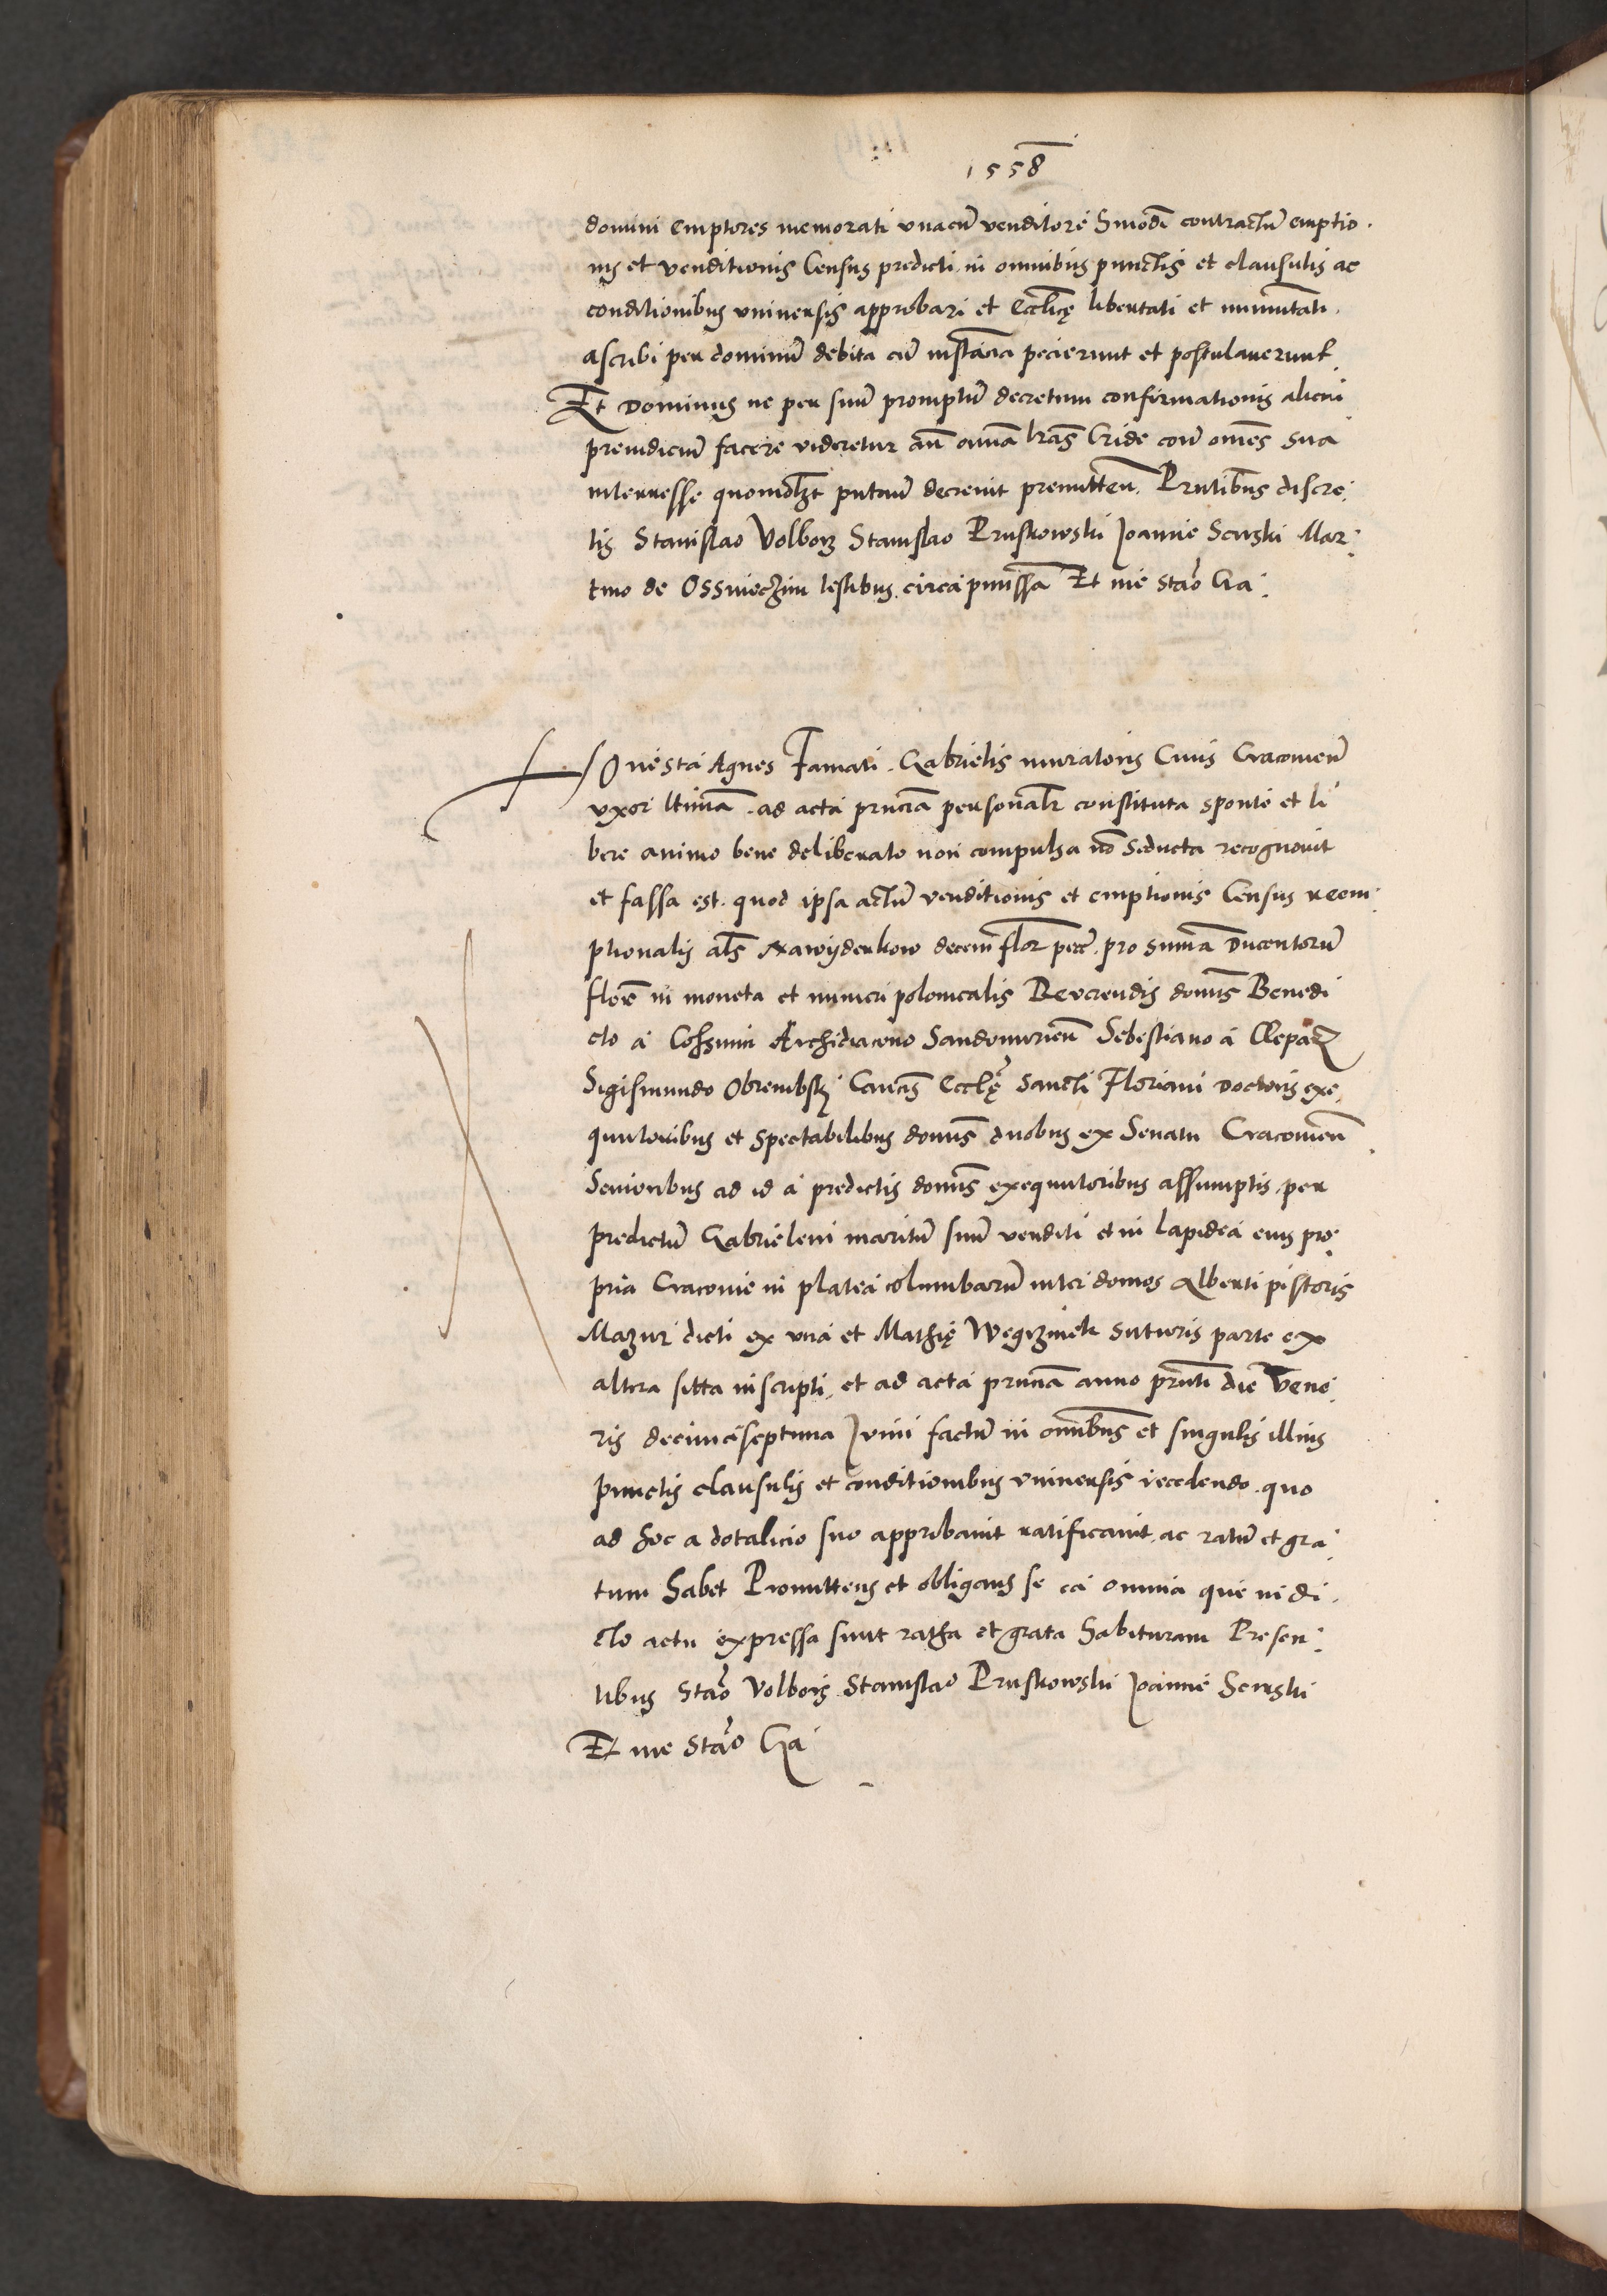 1558
domini emptores memorati unacū venditore Smodi contractū emptio
nis et venditionis Census predicti in omnibus punctis et clausulis ac
conditionibus universis approbari et Ecclicę libertati et immunitati
ascribi per dominū debita cū instācia pecierunt et postulaverunt
Et Dominus ne per suū promptū decretum confirmationis alicui
preiudiciū facere videretur an̄ omīa lrās Cride con̄ om̄es sua
interesse quomolʒt putan̄ decrevit premitten̄. Prntibus discre
tis Stanislao Volborz Stanislao Pruskowski Joanne Serwski Mar
tino de Ossviecʒim testibus circa pmissa Et me Stāo Ga
Honesta Agnes Famati Gabrielis muratoris Civis Cracovien̄
uxor ltīma ad acta prn̄cia personalr constituta sponte et li
bere animo bene deliberato non compulsa nō seducta recognovit
et fassa est quod ipsa actū venditionis et emptionis Census reem
ptionalis als nawyderkow decem flor pecc pro summa Ducentorū
flore in moneta et numeri polonicalis Reverendis domīs Benedi
cto a Cossmin Archidiacono Sandomirien̄ Sebestiano a Clepaz
Sigismundo Obrembsky Can̄cis Ecclę Sancti Floriani Doctoris exe
quutoribus et Spectabilibus domīs duobus ex Senatu Cracovien̄
Senioribus ad id a predictis domīs exequutoribus assumptis per
predictū Gabrielem maritū suū venditi et in lapidea eius pro
pria Cracovie in platea columbarū inter domos Alberti pistoris
Mazur dicti ex una et Mathię Wegrzinek sutoris parte ex
altera sitta inscripti et ad acta prn̄cia anno prn̄ti die Vene
ris decima septima Juni factū in omībus et singulis illius
punctis clausulis et conditionibus universis recedendo quo
ad hoc a dotalicio suo approbavit ratificavit ac ratū et gra
tum habet Promittens et obligans se ea omnia que in di
cto actu expressa sunt ratha et grata habituram Presen
tibus Stāo Volborz Stanislao Pruskowski Joanne Serwski
Et me Stāo Ga